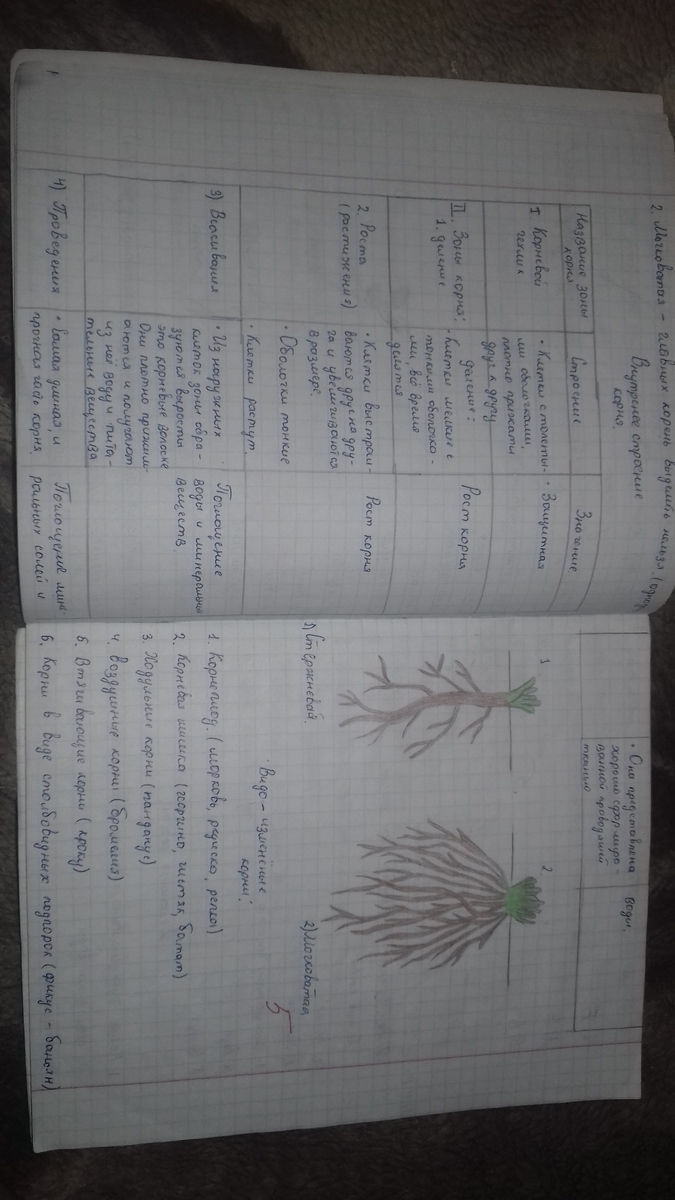 2. Мочковатая - главных корень выделить нельзя. (одно
Внутренее строение
корня.
Название зоны
корня
Строение
Значение
I Корневой
чехлик
• Клетки с толсты-
ми оболочками,
плотно прижаты
друг к другу
• Защитная
II. Зоны корня:
1. деление
деление:
• Клетки мелкие с
тонкими оболочка-
ми, всё время
делятся
Рост корня
2. Роста
(растяжения)
• Клетки выстраи-
ваются друг на дру-
га и увеличиваются
в размере.
• Оболочки тонкие
• Клетки растут.
Рост корня
3) Всасывания
• Из наружных
клеток зоны обра-
зуются выросты
это корневые волоски
Они плотно прижим-
аются и получают
из неё воду и пита-
тельные вещества
Поглощение
воды и минеральных
веществ
4) Проведения
• Самая длиная, и
прочная часть корня
Поглощение мине-
ральных солей и
• Она представлена
хорошо сформиро-
ванной проводящей
тканью
воды.
1
2
1) Стержневая.
2) Мочковатая.
Видо-изменённые
корни:
5
1. Корнеплод. (морковь, редиска, репка)
2. Корневая шишка (георгино, чистяк, батат)
3. Ходульные корни (панданус)
4. Воздушные корни (бромелия)
5. Втягивающие корни (кроку)
6. Корни в виде столбовидных подпорок (фикус - баньян)